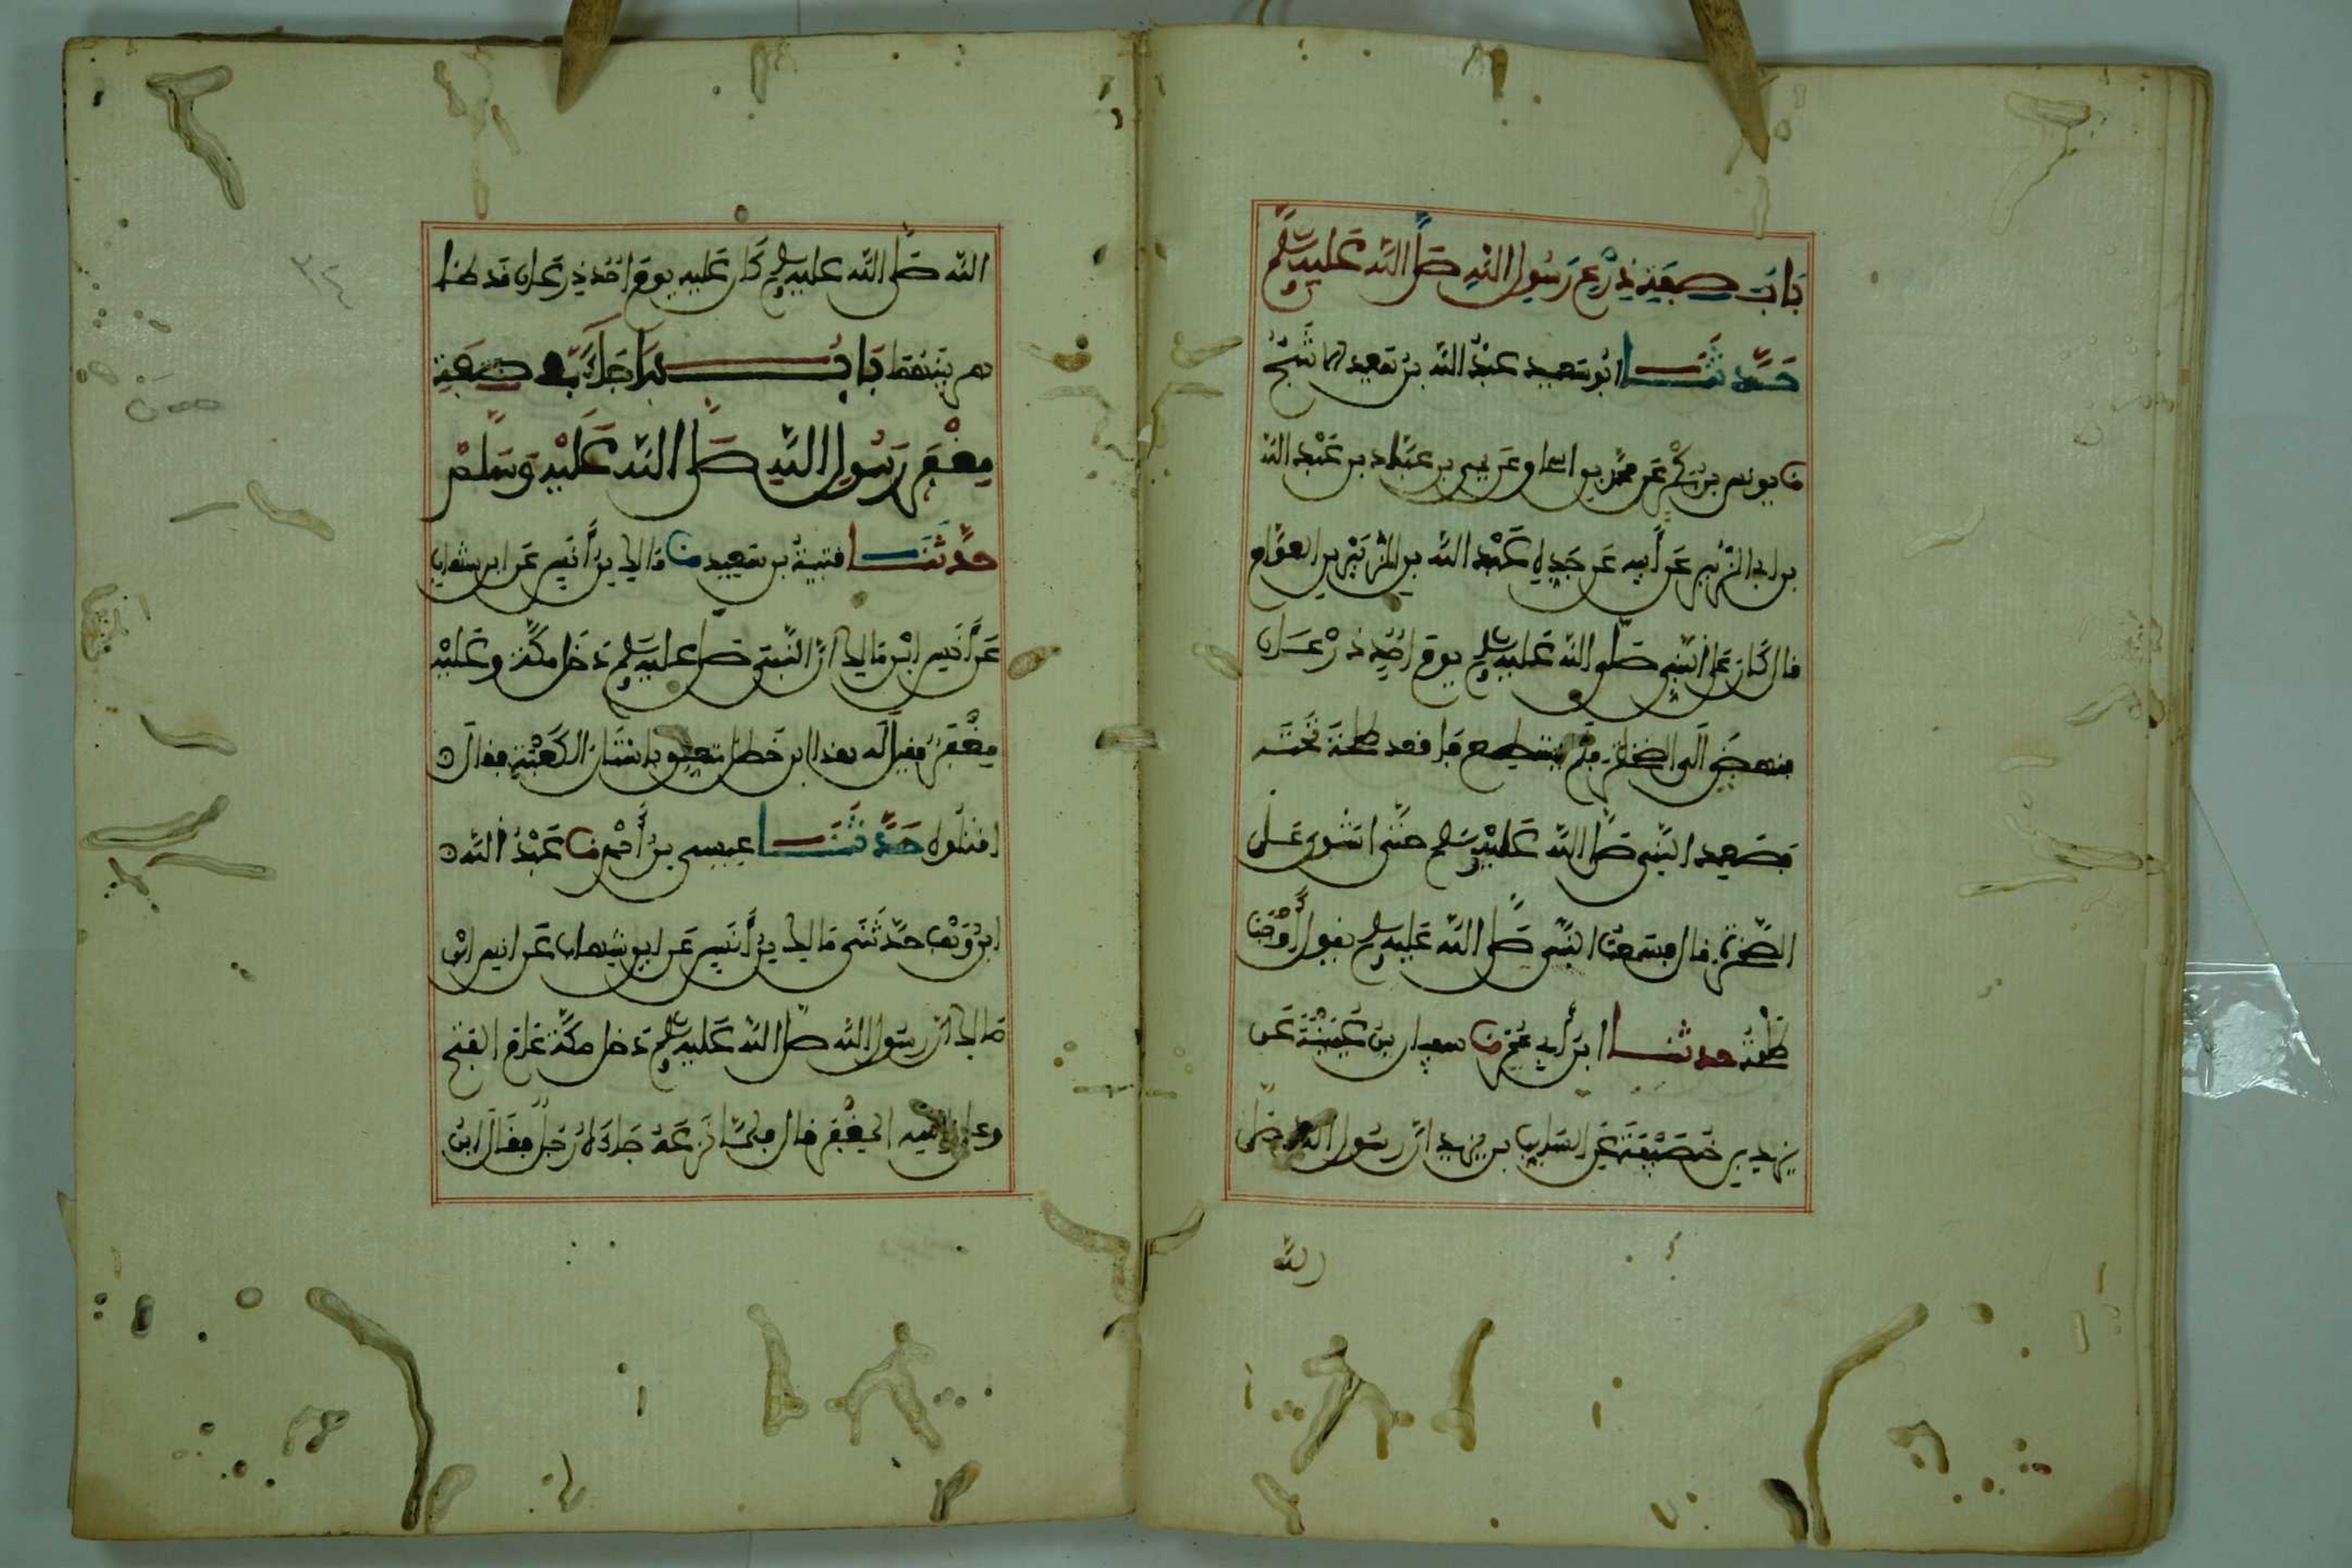 باب صفة درع رسول الله صلى الله عليه وسلم
حدثنا ابو سعيد عبد الله بن سعيد الاشج
نا يونس بن بكير عن محمد بن اسحاق عن يحيى بن عباد بن عبد الله
بن الزبير عن أبيه عن جده عبد الله بن الزبير بن العوام
قال كان على النبي صلى الله عليه وسلم يوم احد درعان
فنهض الى الصخرة فلم يستطع فاقعد طلحة تحته
فصعد النبي صلى الله عليه وسلم حتى استوى على
الصخرة قال فسمعت النبي صلى الله عليه وسلم يقول أوجب
طلحة حدثنا ابن أبي عمر نا سفيان بن عيينة عن
يزيد بن خصيفة عن السايب بن يزيد ان رسول الله صلى
الله
الله صلى الله عليه وسلم كان عليه يوم احد درعان قد ظاهر
بينهما باب ما جاء في صفة
مغفر رسول الله صلى الله عليه وسلم
حدثنا قتيبة بن سعيد نا مالك بن أنس عن ابن شهاب
عن أنس ابن مالك ان النبي صلى عليه وسلم دخل مكة وعليه
مغفر فقيل له هذا ابن خطل متعلق باستار الكعبة فقال
اقتلوه حدثنا عيسى بن أحمد نا عبد الله
ابن وهب حدثني مالك بن أنس عن ابن شهاب عن انس ابن
مالك ان رسول الله صلى الله عليه وسلم دخل مكة عام الفتح
وعلى راسه المغفر قال فلما نزعه جاءه رجل فقال ابن
٣٤